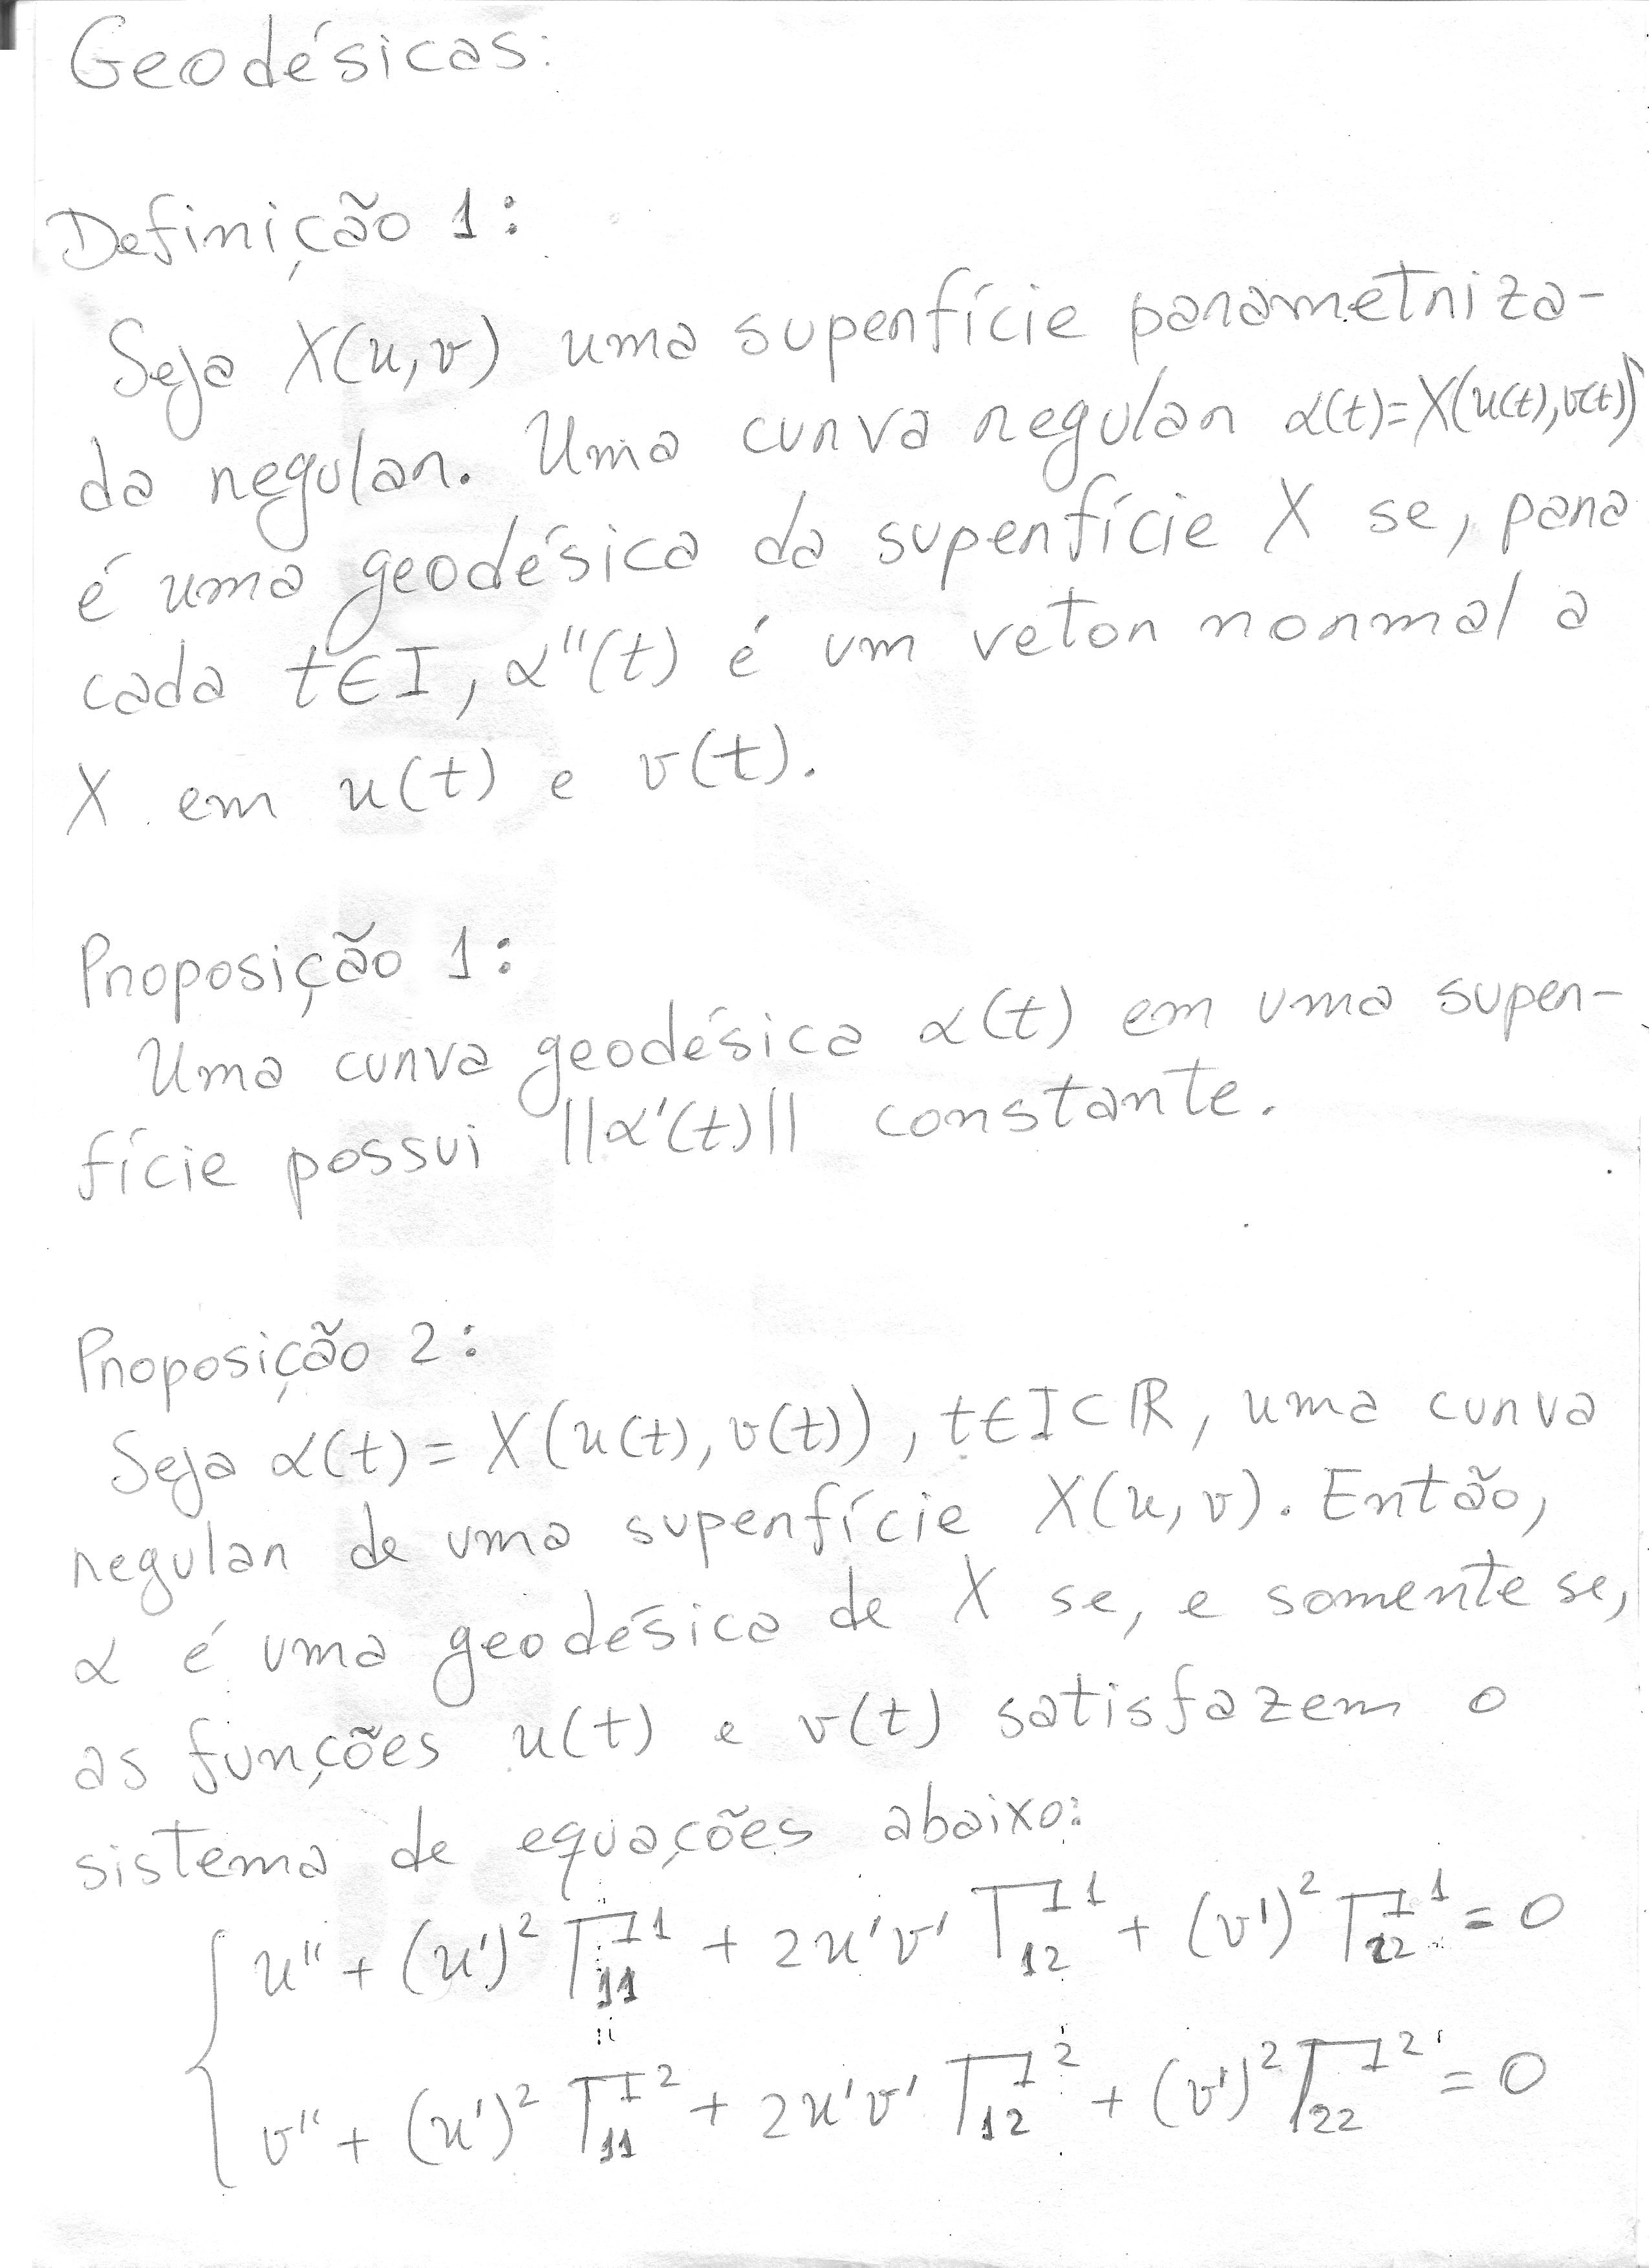 Geodésicas:
Definição 1:
Seja X(u,v) uma superfície parametriza-
da regular. Uma curva regular α(t)=X(u(t),v(t))
é uma geodésica da superfície X se, para
cada t∈I, α''(t) é um vetor normal a
X em u(t) e v(t).
Proposição 1:
Uma curva geodésica α(t) em uma super-
fície possui ||α'(t)|| constante.
Proposição 2:
Seja α(t) = X(u(t), v(t)), t∈I⊂ℝ, uma curva
regular de uma superfície X(u,v). Então,
α é uma geodésica de X se, e somente se,
as funções u(t) e v(t) satisfazem o
sistema de equações abaixo:
u'' + (u')² Γ₁₁¹ + 2u'v' Γ₁₂¹ + (v')² Γ₂₂¹ = 0
v'' + (u')² Γ₁₁² + 2u'v' Γ₁₂² + (v')² Γ₂₂² = 0